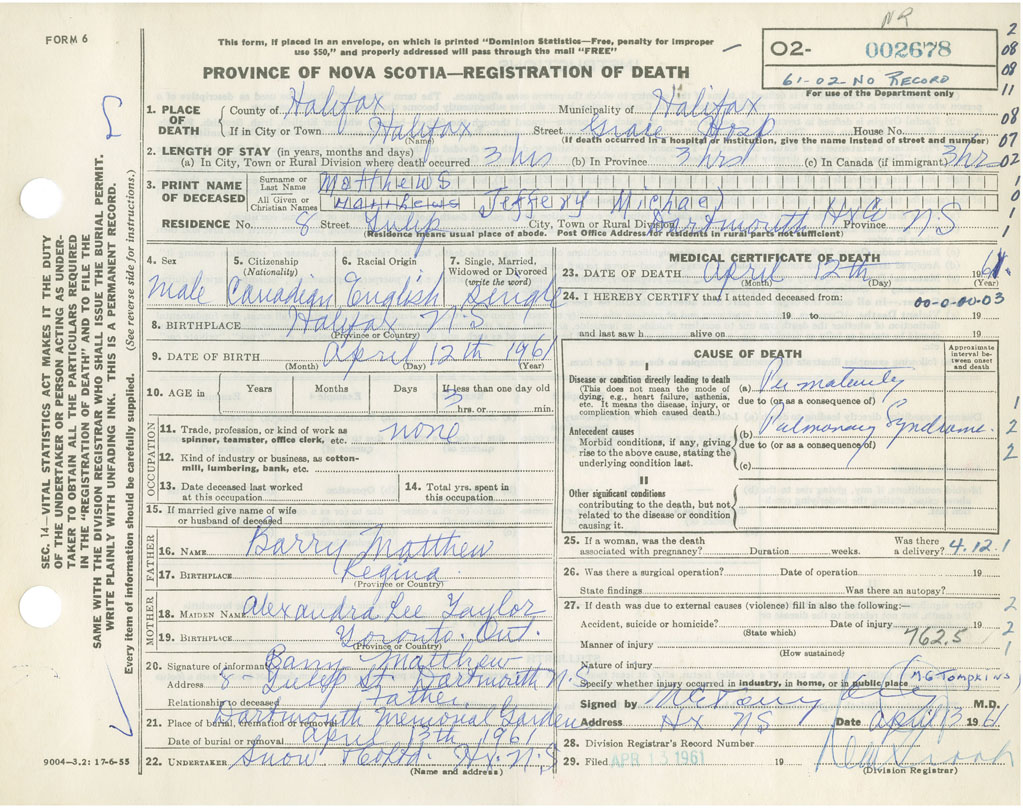 NR
FORM 6
This form, if placed in an envelope, on which is printed "Dominion Statistics—Free, penalty for improper
use $50," and properly addressed will pass through the mail "FREE"
02- 002678
61-02-NO RECORD
For use of the Department only
PROVINCE OF NOVA SCOTIA—REGISTRATION OF DEATH
1. PLACE OF DEATH
County of Halifax Municipality of Halifax
If in City or Town Halifax Street Grace Hosp House No.
(Name) (If death occurred in a hospital or institution, give the name instead of street and number)
2. LENGTH OF STAY (in years, months and days)
(a) In City, Town or Rural Division where death occurred 3 hrs (b) In Province 3 hrs (c) In Canada (if immigrant) 3 hrs
3. PRINT NAME OF DECEASED
Surname or Last Name Matthews
All Given or Christian Names Matthews Jeffery Michael
RESIDENCE No. 8 Street Tulip City, Town or Rural Division Dartmouth Hx Co Province NS
(Residence means usual place of abode. Post Office Address for residents in rural parts not sufficient)
4. Sex Male
5. Citizenship (Nationality) Canadian
6. Racial Origin English
7. Single, Married, Widowed or Divorced (write the word) Single
8. BIRTHPLACE Halifax N.S
(Province or Country)
9. DATE OF BIRTH April 12th 1961
(Month) (Day) (Year)
10. AGE in Years Months Days If less than one day old
3 hrs. or min.
OCCUPATION
11. Trade, profession, or kind of work as spinner, teamster, office clerk, etc. none
12. Kind of industry or business, as cotton-mill, lumbering, bank, etc.
13. Date deceased last worked at this occupation
14. Total yrs. spent in this occupation
15. If married give name of wife or husband of deceased
FATHER
16. NAME Barry Matthew
17. BIRTHPLACE Regina
(Province or Country)
MOTHER
18. MAIDEN NAME Alexandra Lee Taylor
19. BIRTHPLACE Toronto. Ont.
(Province or Country)
20. Signature of informant Barry Matthew
Address 8 - Tulip St. Dartmouth N.S
Relationship to deceased Father
21. Place of burial, cremation or removal Dartmouth Memorial Garden
Date of burial or removal April 13th 1961
22. UNDERTAKER Snow Hx. N.S
(Name and address)
9004—3.2: 17-6-55
MEDICAL CERTIFICATE OF DEATH
23. DATE OF DEATH April 12th 1961
(Month) (Day) (Year)
24. I HEREBY CERTIFY that I attended deceased from: 00-0-00-03
19 to 19
and last saw h alive on 19
CAUSE OF DEATH
Approximate interval between onset and death
I
Disease or condition directly leading to death
(This does not mean the mode of dying, e.g., heart failure, asthenia, etc. It means the disease, injury, or complication which caused death.)
(a)
due to (or as a consequence of)
Antecedent causes
Morbid conditions, if any, giving rise to the above cause, stating the underlying condition last.
(b) Pulmonary Syndrome.
due to (or as a consequence of)
(c)
II
Other significant conditions
contributing to the death, but not related to the disease or condition causing it.
25. If a woman, was the death associated with pregnancy? Duration weeks. Was there a delivery? 4.12.1
26. Was there a surgical operation? Date of operation 19
State findings Was there an autopsy?
27. If death was due to external causes (violence) fill in also the following:—
Accident, suicide or homicide? Date of injury 19
(State which)
762.5
Manner of injury
(How sustained)
Nature of injury
Specify whether injury occurred in industry, in home, or in public place MG TOMPKINS
Signed by M.D.
Address Hx NS Date April 13 1961
28. Division Registrar's Record Number
29. Filed APR 13 1961 19
(Division Registrar)
SEC. 14—VITAL STATISTICS ACT MAKES IT THE DUTY
OF THE UNDERTAKER OR PERSON ACTING AS UNDER-
TAKER TO OBTAIN ALL THE PARTICULARS REQUIRED
IN THE "REGISTRATION OF DEATH" AND TO FILE THE
SAME WITH THE DIVISION REGISTRAR WHO SHALL ISSUE THE BURIAL PERMIT.
WRITE PLAINLY WITH UNFADING INK. THIS IS A PERMANENT RECORD.
Every item of information should be carefully supplied. (See reverse side for instructions.)
2
08
08
11
08
07
02
1
0
1
1
1
2
2
2
2
1